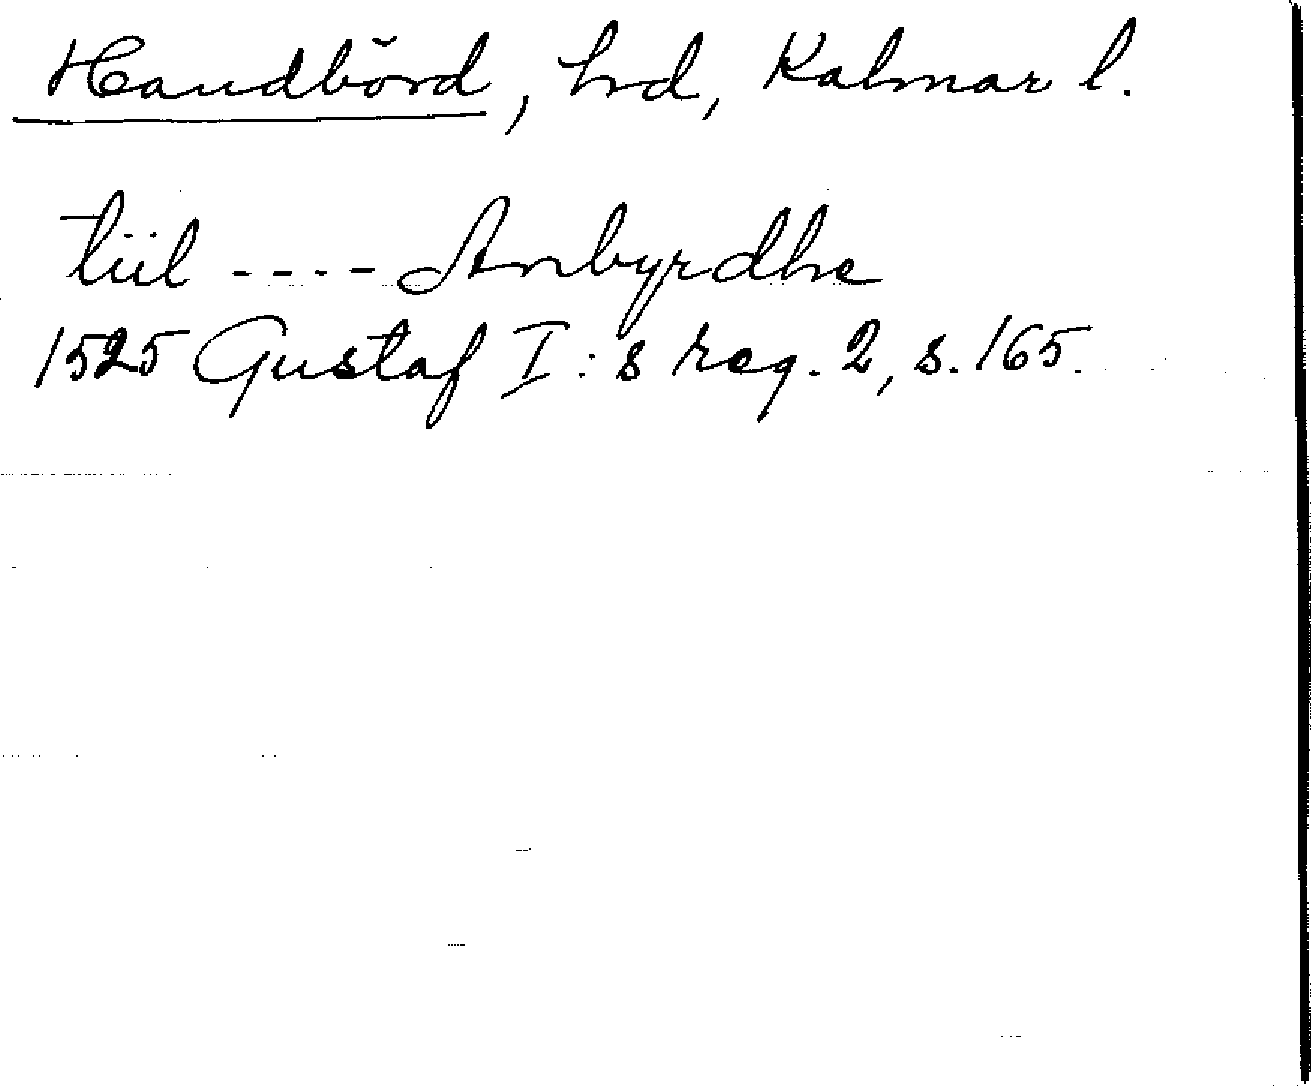 Handbörd, hd, Kalmar l.
tiil ---- Anbyrdhe
1525 Gustaf I:s reg. 2, s. 165.